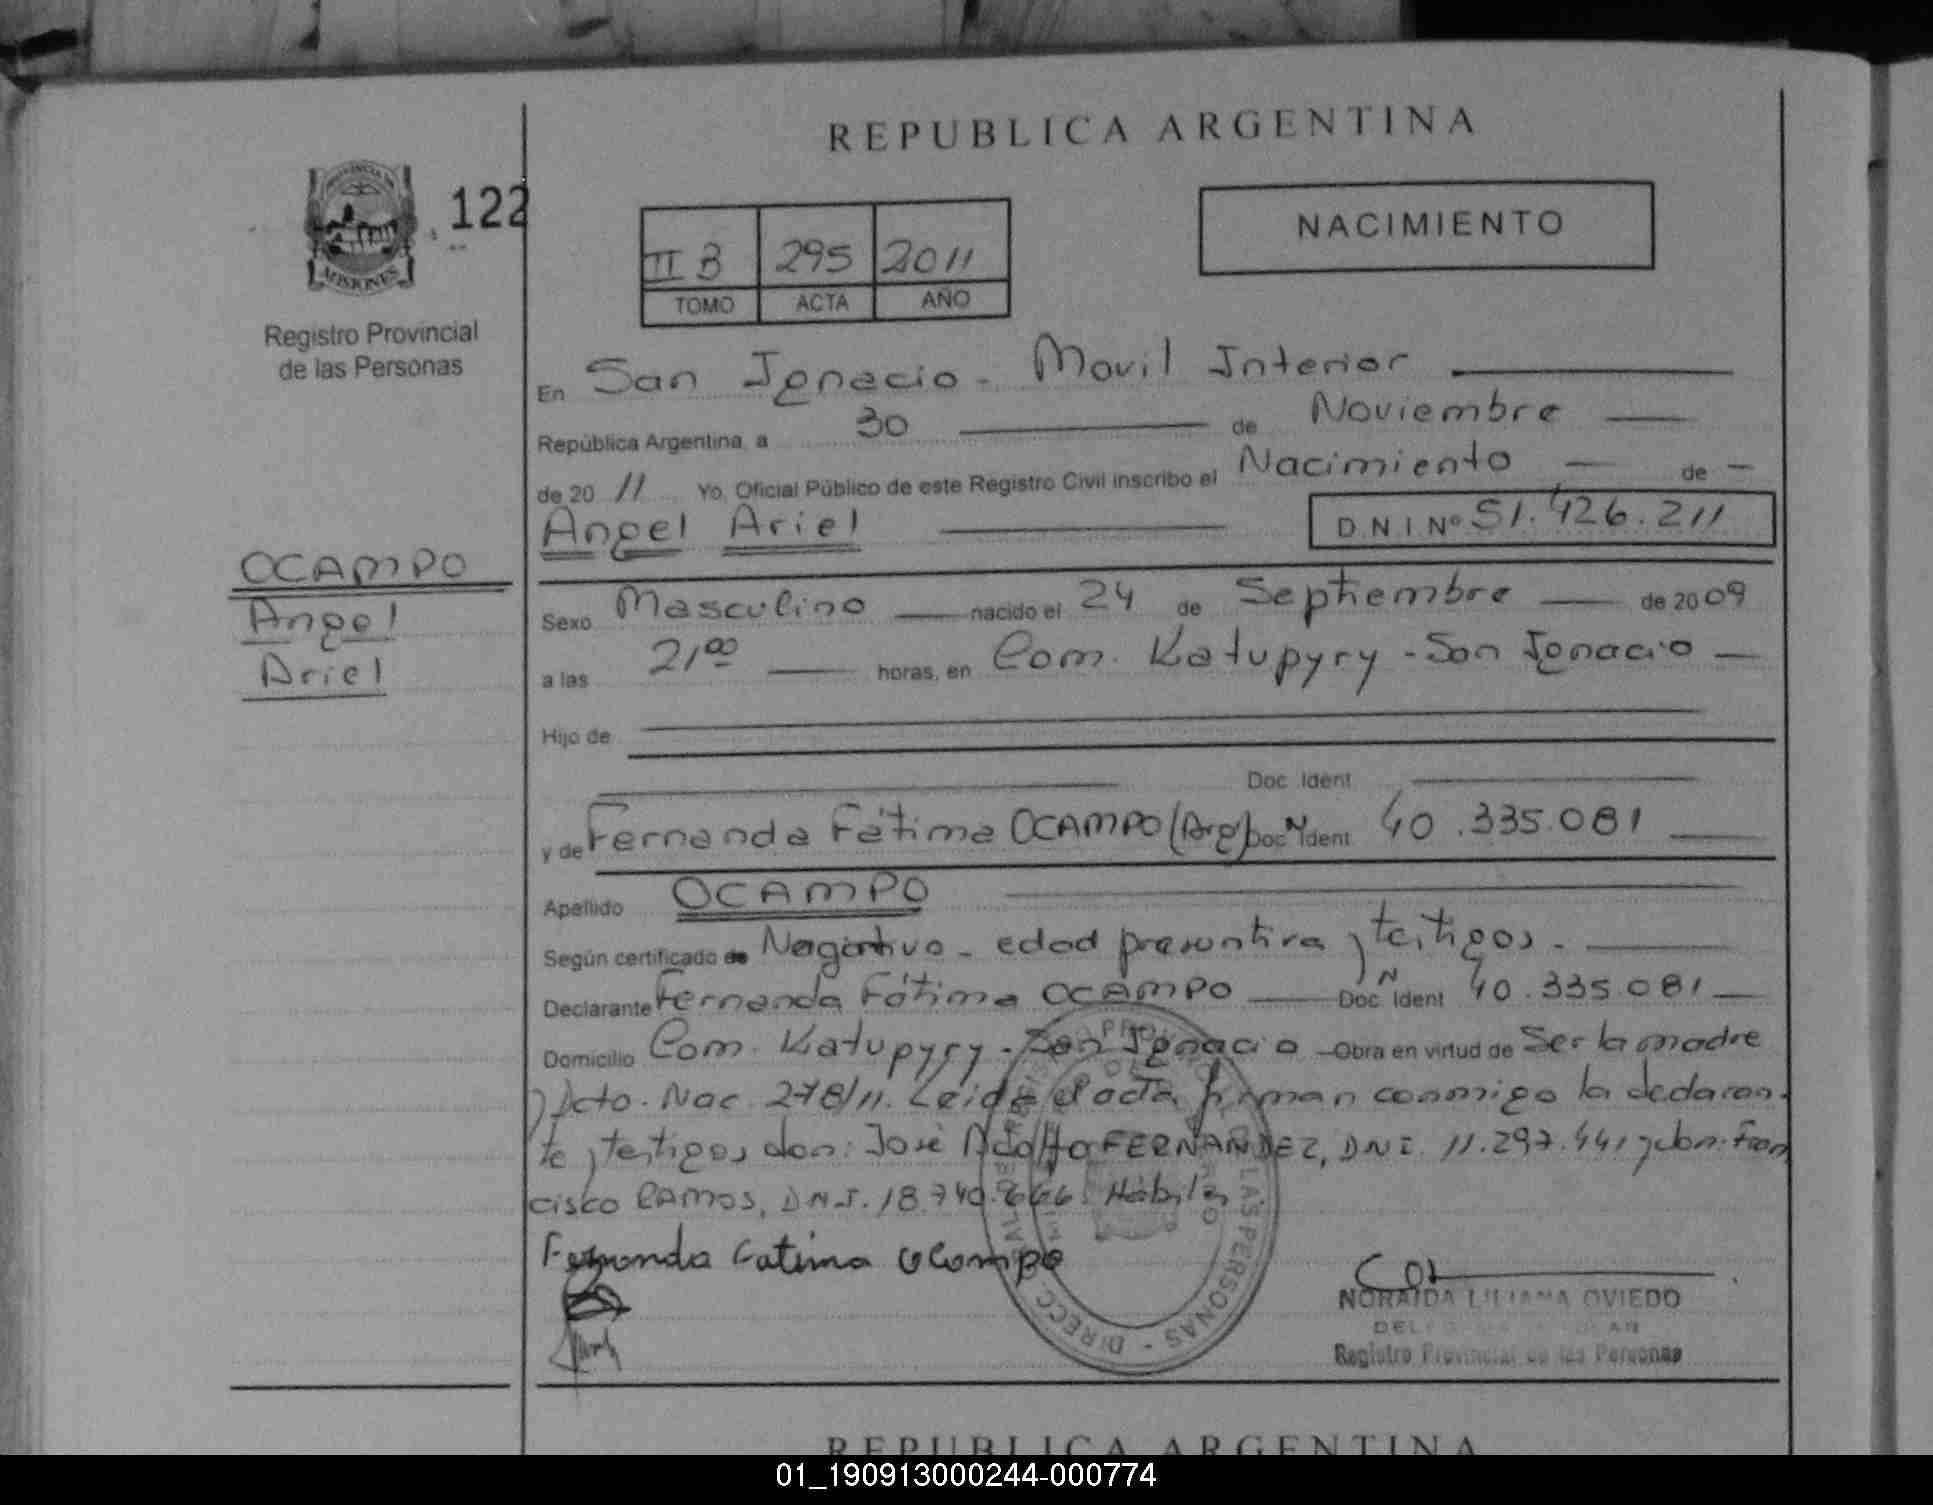 REPUBLICA ARGENTINA
PROVINCIA DE
MISIONES
122
Registro Provincial
de las Personas
II B 295 2011
TOMO ACTA AÑO
NACIMIENTO
En San Ignacio - Movil Interior
República Argentina, a 30 de Noviembre
de 20 11 Yo, Oficial Público de este Registro Civil inscribo el Nacimiento de
Angel Ariel D.N.I. Nº 51.426.211
OCAMPO
Angel
Ariel
Sexo Masculino nacido el 24 de Septiembre de 20 09
a las 21 00 horas, en Com. Katupyry - San Ignacio
Hijo de
Doc. Ident
y de Fernanda Fátima OCAMPO (Arg) Doc N Ident 40.335.081
Apellido OCAMPO
Según certificado de Negativo - edad presuntiva y testigos.
Declarante Fernanda Fátima OCAMPO Doc N Ident 40.335.081
Domicilio Com. Katupyry - San Ignacio Obra en virtud de Ser la madre
y Acto. Nac. 278/11. Leida el acta, firman conmigo la declaran-
te y testigos don: José Adolfo FERNANDEZ, DNI. 11.297.441 y don: Fran
cisco RAMOS, DNI. 18.740.666. Hábiles
Fernanda Fatima Ocampo
NORAIDA LILIANA OVIEDO
Registro Provincial de las Personas
LAS PERSONAS - DIRECC
REPUBLICA ARGENTINA
01_190913000244-000774